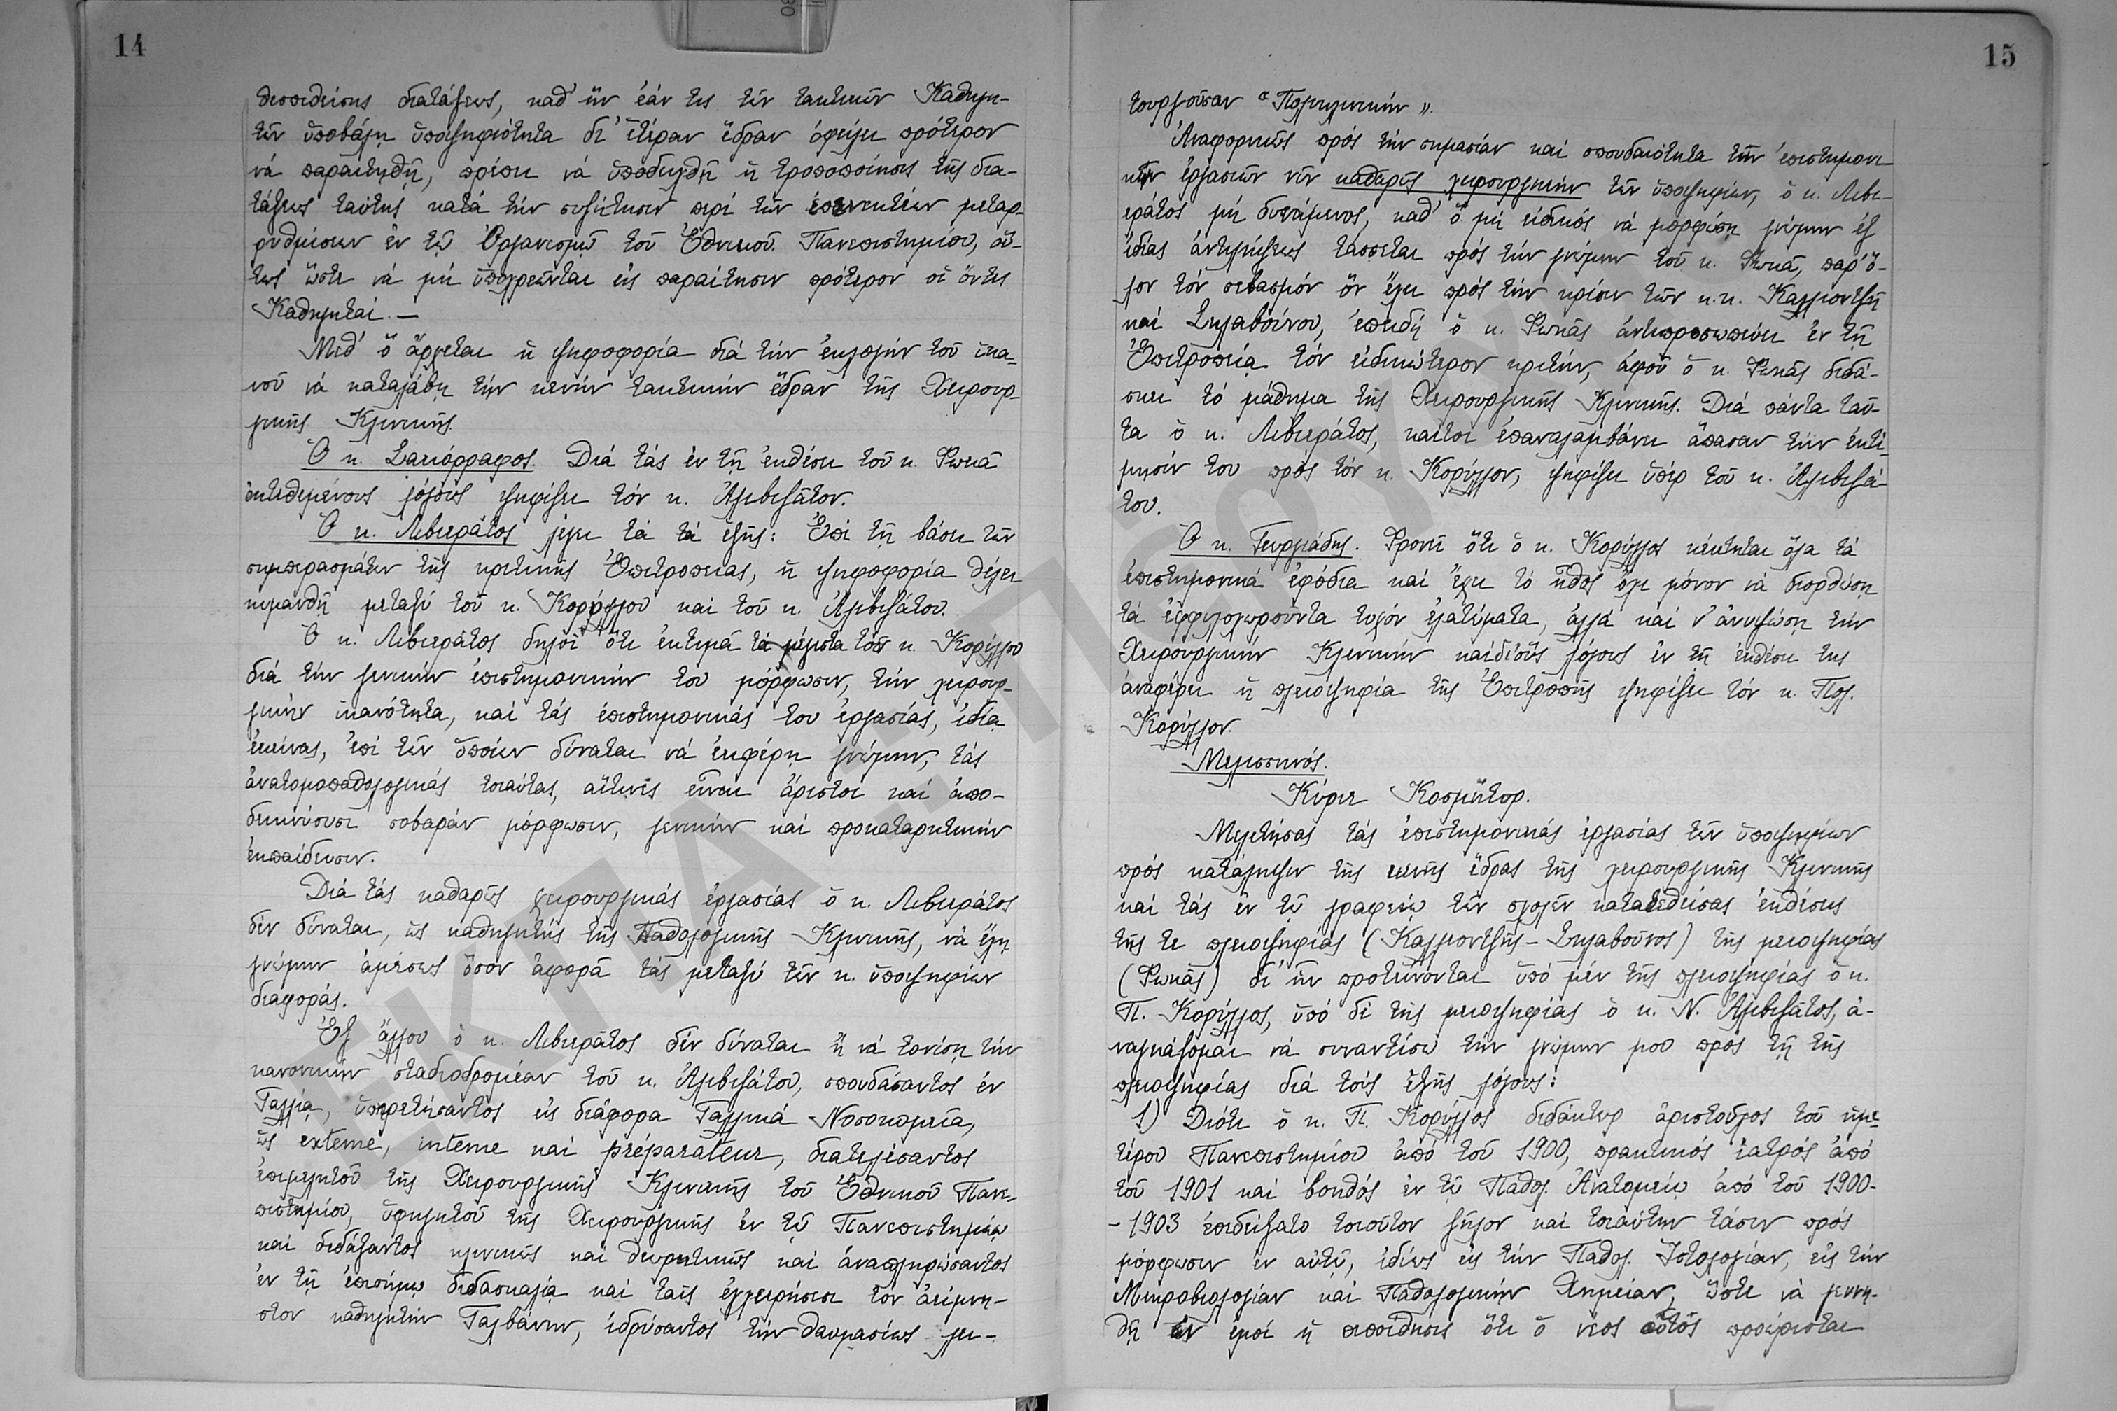 14
θεσπισθείσης διατάξεως, καθ' ἥν ἐάν τις τῶν τακτικῶν Καθηγη-
τῶν ὑποβάλῃ ὑποψηφιότητα δι' ἑτέραν ἕδραν ὀφείλει πρότερον
νά παραιτηθῇ, πρέπει νά ὑποδειχθῇ ἡ τροποποίησις τῆς δια-
τάξεως ταύτης κατά τήν συζήτησιν περί τῶν ἐπενεκτέων μεταρ-
ρυθμίσεων ἐν τῷ Ὀργανισμῷ τοῦ Ἐθνικοῦ Πανεπιστημίου, οὕ-
τως ὥστε νά μή ὑποχρεῶνται εἰς παραίτησιν πρότερον οἱ ὄντες
Καθηγηταί.—
Μεθ' ὅ ἄρχεται ἡ ψηφοφορία διά τήν ἐκλογήν τοῦ ἱκα-
νοῦ νά καταλάβῃ τήν κενήν τακτικήν ἕδραν τῆς Χειρουρ-
γικῆς Κλινικῆς.
Ὁ κ. Σακόρραφος. Διά τάς ἐν τῇ ἐκθέσει τοῦ κ. Φωκᾶ
ἐκτεθειμένους λόγους ψηφίζει τόν κ. Ἀλεβιζᾶτον.
Ὁ κ. Λιβιεράτος λέγει τά τά ἑξῆς: Ἐπί τῇ βάσει τῶν
συμπερασμάτων τῆς κριτικῆς Ἐπιτροπείας, ἡ ψηφοφορία θέλει
κυμανθῆ μεταξύ τοῦ κ. Κορύλλου καί τοῦ κ. Ἀλεβιζάτου.
Ὁ κ. Λιβιεράτος δηλοῖ ὅτι ἐκτιμᾷ τά μέγιστα τόν κ. Κορύλλον
διά τήν γενικήν ἐπιστημονικήν του μόρφωσιν, τήν χειρουρ-
γικήν ἱκανότητα, καί τάς ἐπιστημονικάς του ἐργασίας, ἰδίᾳ
ἐκείνας, ἐπί τῶν ὁποίων δύναται νά ἐκφέρῃ γνώμην, τάς
ἀνατομοπαθολογικάς τοιαύτας, αἵτινες εἶναι ἄρισται καί ἀπο-
δεικνύουσι σοβαράν μόρφωσιν, γενικήν καί προκαταρκτικήν
ἐκπαίδευσιν.
Διά τάς καθαρῶς χειρουργικάς ἐργασίας ὁ κ. Λιβιεράτος
δέν δύναται, ὡς καθηγητής τῆς Παθολογικῆς Κλινικῆς, νά ἔχῃ
γνώμην ἀμέσως ὅσον ἀφορᾷ τάς μεταξύ τῶν κ. ὑποψηφίων
διαφοράς.
Ἐξ ἄλλου ὁ κ. Λιβιεράτος δέν δύναται ἤ νά τονίσῃ τήν
κανονικήν σταδιοδρομίαν τοῦ κ. Ἀλεβιζάτου, σπουδάσαντος ἐν
Γαλλίᾳ, ὑπηρετήσαντος εἰς διάφορα Γαλλικά Νοσοκομεῖα,
ὡς externe, interne καί préparateur, διατελέσαντος
ἐπιμελητοῦ τῆς Χειρουργικῆς Κλινικῆς τοῦ Ἐθνικοῦ Πανε-
πιστημίου, ὑφηγητοῦ τῆς Χειρουργικῆς ἐν τῷ Πανεπιστημίῳ
καί διδάξαντος κλινικῶς καί θεωρητικῶς καί ἀναπληρώσαντος
ἐν τῇ ἐπισήμῳ διδασκαλίᾳ καί ταῖς ἐγχειρήσεσι τόν ἀείμνη-
στον καθηγητήν Γαλβάνην, ἱδρύσαντος τήν θαυμασίως λει-
15
τουργοῦσαν "Πολυκλινικήν".
Ἀναφορικῶς πρός τήν σημασίαν καί σπουδαιότητα τῶν ἐπιστημονι-
κῶν ἐργασιῶν τῶν καθαρῶς χειρουργικῶν τῶν ὑποψηφίων, ὁ κ. Λιβι-
εράτος μή δυνάμενος, καθ' ὅ μή εἰδικός νά μορφώσῃ γνώμην ἐξ
ἰδίας ἀντιλήψεως τάσσεται πρός τήν γνώμην τοῦ κ. Φωκᾶ, παρ' ὅ-
λον τόν σεβασμόν ὅν ἔχει πρός τήν κρίσιν τῶν κ.κ. Καλλιοντζῆ
καί Σκλαβούνου, ἐπειδή ὁ κ. Φωκᾶς ἀντιπροσωπεύει ἐν τῇ
Ἐπιτροπείᾳ τόν εἰδικώτερον κριτήν, ἀφοῦ ὁ κ. Φωκᾶς διδά-
σκει τό μάθημα τῆς Χειρουργικῆς Κλινικῆς. Διά πάντα ταῦ-
τα ὁ κ. Λιβιεράτος, καίτοι ἐπαναλαμβάνει ἅπασαν τήν ἐκτί-
μησίν του πρός τόν κ. Κορύλλον, ψηφίζει ὑπέρ τοῦ κ. Ἀλεβιζά-
του.
Ὁ κ. Γεωργιάδης. Φρονεῖ ὅτι ὁ κ. Κορύλλος κέκτηται ὅλα τά
ἐπιστημονικά ἐφόδια καί ἔχει τό ἦθος ὄχι μόνον νά διορθώσῃ
τά ἐμφιλοχωροῦντα τυχόν ἐλατώματα, ἀλλά καί ν' ἀνυψώσῃ τήν
Χειρουργικήν Κλινικήν καί δι' οὕς λόγους ἐν τῇ ἐκθέσει της
ἀναφέρει ἡ πλειοψηφία τῆς Ἐπιτροπῆς ψηφίζει τόν κ. Πολ.
Κορύλλον.
Μελισσηνός.
Κύριε Κοσμῆτορ.
Μελετήσας τάς ἐπιστημονικάς ἐργασίας τῶν ὑποψηφίων
πρός κατάληψιν τῆς κενῆς ἕδρας τῆς χειρουργικῆς Κλινικῆς
καί τάς ἐν τῷ γραφείῳ τῶν σχολῶν κατατεθείσας ἐκθέσεις
τῆς τε πλειοψηφίας (Καλλιοντζῆς - Σκλαβοῦνος) τῆς μειοψηφίας
(Φωκᾶς) δι' ὧν προτείνονται ὑπό μέν τῆς πλειοψηφίας ὁ κ.
Π. Κορύλλος, ὑπό δέ τῆς μειοψηφίας ὁ κ. Ν. Ἀλεβιζᾶτος, ἀ-
ναγκάζομαι νά συναντίσω τήν γνώμην μου πρός τῇ τῆς
πλειοψηφίας διά τούς ἑξῆς λόγους:
1) Διότι ὁ κ. Π. Κορύλλος διδάκτωρ ἀριστοῦχος τοῦ ἡμε-
τέρου Πανεπιστημίου ἀπό τοῦ 1900, πρακτικός ἰατρός ἀπό
τοῦ 1901 καί βοηθός ἐν τῷ Παθολ. Ἀνατομείῳ ἀπό τοῦ 1900-
-1903 ἐπεδείξατο τοιοῦτον ζῆλον καί τοιαύτην τάσιν πρός
μόρφωσιν ἐν αὐτῷ, ἰδίως εἰς τήν Παθολ. Ἱστολογίαν, εἰς τήν
Μικροβιολογίαν καί Παθολογικήν Χημείαν, ὥστε νά γεννη-
θῇ ἐν ἐμοί ἡ πεποίθησις ὅτι ὁ νέος αὐτός προώρισται
ΕΚΠΑ